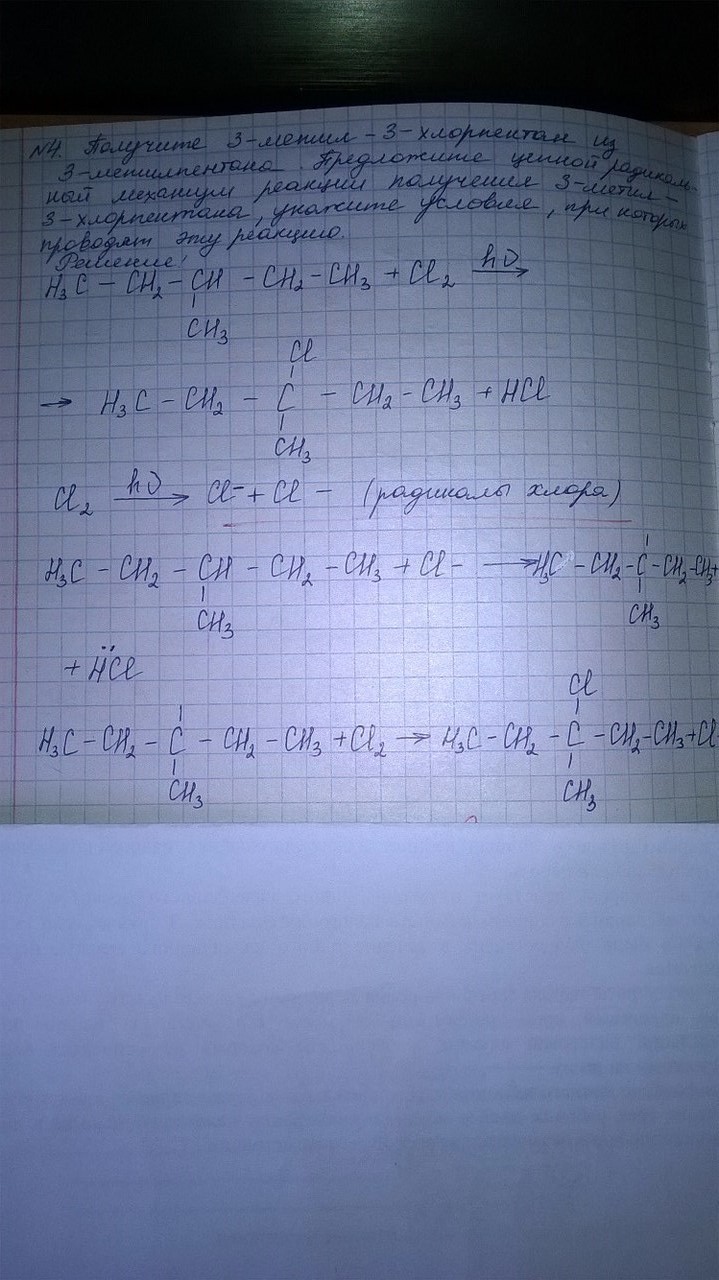 №4. Получите 3-метил-3-хлорпентан из
3-метилпентана. Предложите цепной радикаль-
ный механизм реакции получения 3-метил-
3-хлорпентана, укажите условия, при которых
проводят эту реакцию.
Решение:
H₃C – CH₂ – CH – CH₂ – CH₃ + Cl₂ hν →
CH₃
Cl
→ H₃C – CH₂ – C – CH₂ – CH₃ + HCl
CH₃
Cl₂ hν → Cl- + Cl - (радикалы хлора)
H₃C – CH₂ – CH – CH₂ – CH₃ + Cl - → H₃C – CH₂ – C – CH₂ – CH₃ +
CH₃ CH₃
+ HCl
Cl
H₃C – CH₂ – C – CH₂ – CH₃ + Cl₂ → H₃C – CH₂ – C – CH₂ – CH₃ + Cl
CH₃ CH₃